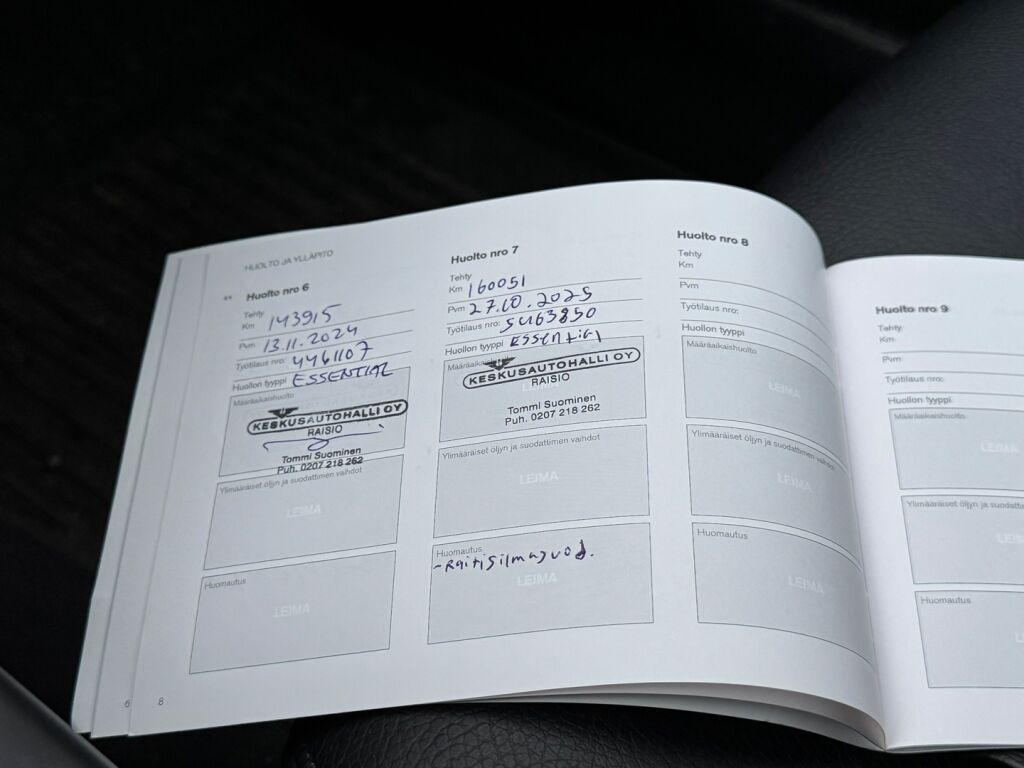 HUOLTO JA YLLÄPITO
Huolto nro 6
Tehty
Km 143915
Pvm 13.11.2024
Työtilaus nro: 4461107
Huollon tyyppi ESSENTIAL
Määräaikaishuolto
KESKUSAUTOHALLI OY
RAISIO
Tommi Suominen
Puh. 0207 218 262
Ylimääräiset öljyn ja suodattimen vaihdot
LEIMA
Huomautus
LEIMA
6
8
Huolto nro 7
Tehty
Km 160051
Pvm 27.10.2025
Työtilaus nro:
Huollon tyyppi ESSENtial
Määräaikaishuolto
KESKUSAUTOHALLI OY
RAISIO
Tommi Suominen
Puh. 0207 218 262
Ylimääräiset öljyn ja suodattimen vaihdot
LEIMA
Huomautus
-Raitisilmasuod.
LEIMA
Huolto nro 8
Tehty
Km
Pvm
Työtilaus nro:
Huollon tyyppi
Määräaikaishuolto
LEIMA
Ylimääräiset öljyn ja suodattimen vaihdot
LEIMA
Huomautus
LEIMA
Huolto nro 9
Tehty
Km
Pvm
Työtilaus nro:
Huollon tyyppi
Määräaikaishuolto
LEIMA
Ylimääräiset öljyn ja suodatti
LEI
Huomautus
L